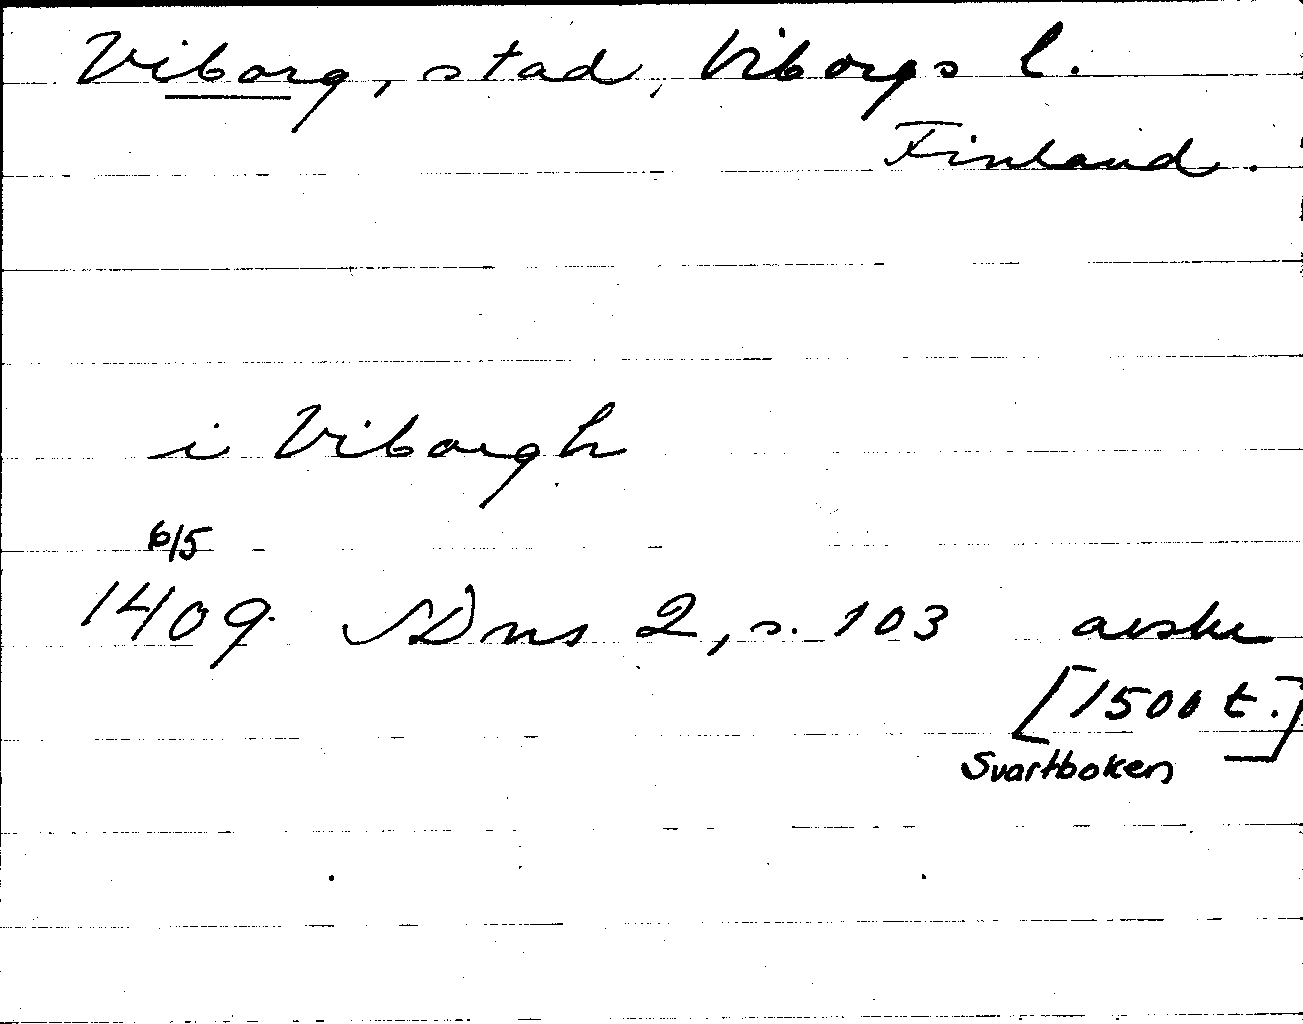 Viborg, stad, Viborgs l.
Finland.
i Viborgh
6/5
1409 SDns 2, s. 103 avskr
[1500 t.]
Svartboken